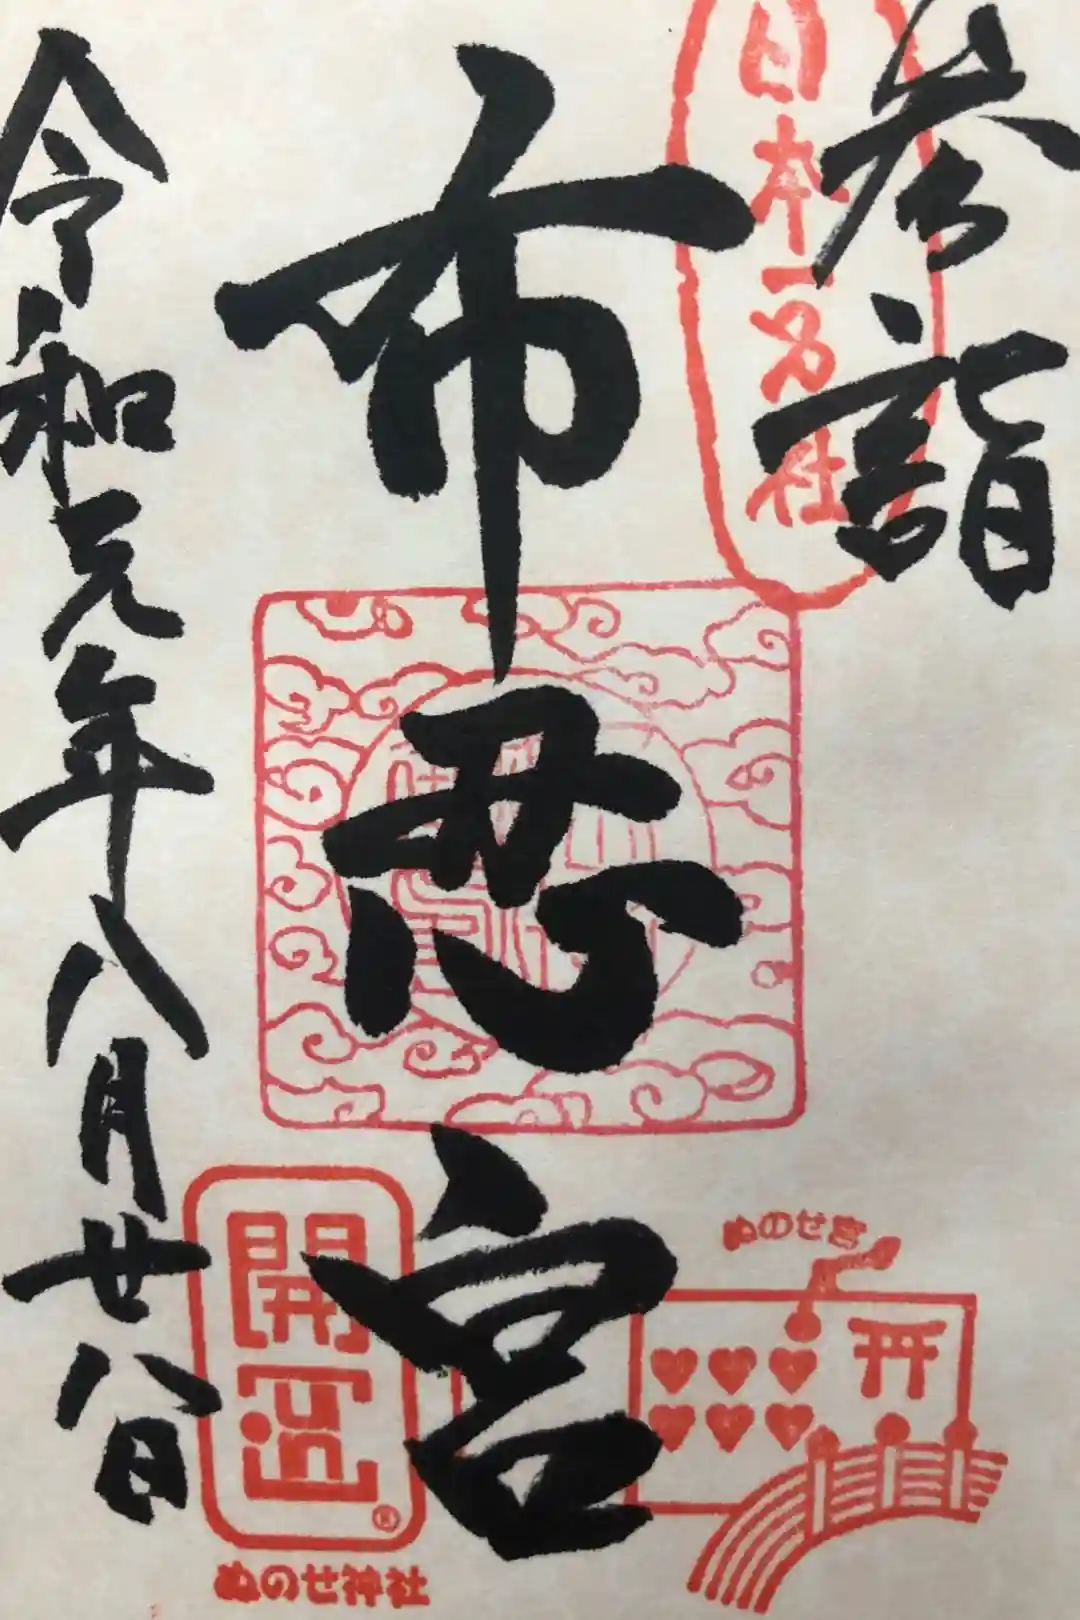 参詣
日本一名社
布忍宮
令和元年八月廿八日
開運
®
ぬのせ神社
ぬのせ宮